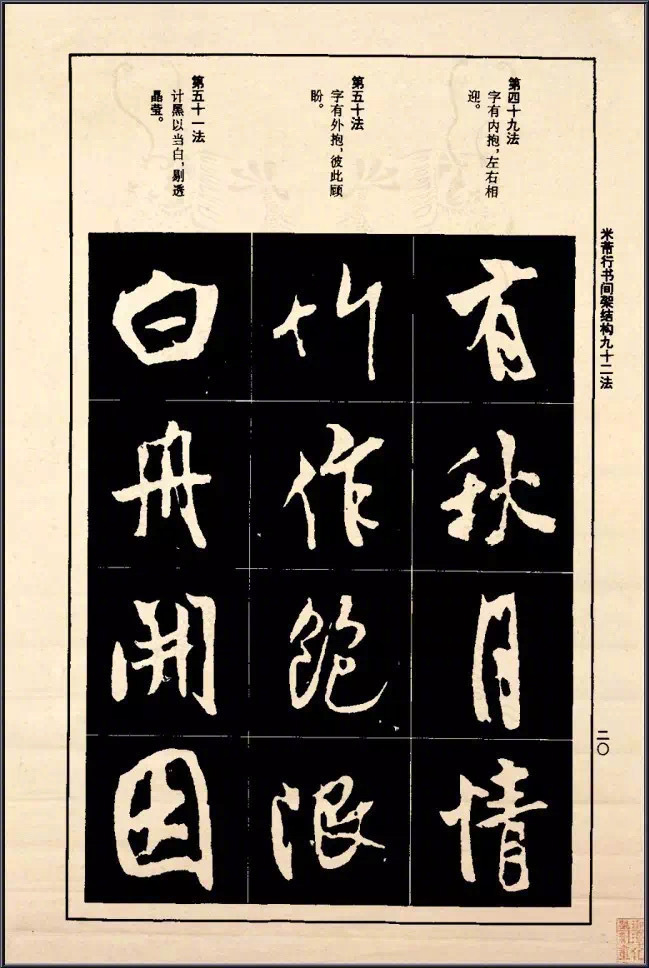 米芾行书间架结构九十二法
二〇
第四十九法
字有内抱，左右相
迎。
第五十法
字有外抱，彼此顾
盼。
第五十一法
计黑以当白，剔透
晶莹。
有秋月情
竹作飽
白舟開因